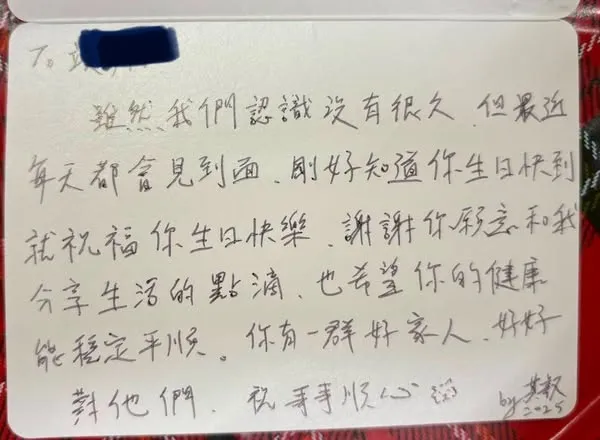 To
雖然我們認識沒有很久、但最近
每天都會見到面、剛好知道你生日快到
就祝福你生日快樂、謝謝你願意和我
分享生活的點滴、也希望你的健康
能穩定平順。你有一群好家人、好好
對他們、祝事事順心
by 2025